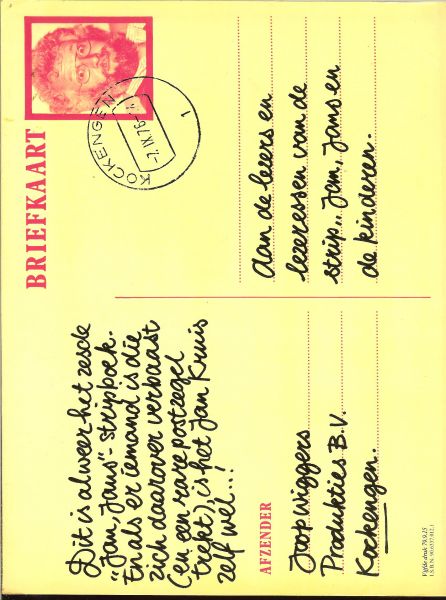 BRIEFKAART
KOCKENGEN
-7.IX.76-
1
Dit is alweer het zesde
"Jan, Jans"-stripboek.
En als er iemand is die
zich daarover verbaast
(en een rare postzegel
trekt), is het Jan Kruis
zelf wel...!
Aan de lezers en
lezeressen van de
strip „Jan, Jans en
de kinderen.
AFZENDER
Joop Wiggers
Produkties B.V.
Kockengen.
Vijfde druk 79.9.25